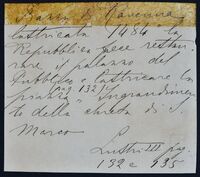 Piazza di Ravenna
lastricata 1484 la
Repubblica fece restau
rare il palazzo del
Pubblico e lastricare la
piazza (pag 132) Ingrandimen
to della chiesa di S
Marco
III pag.
132 e 135